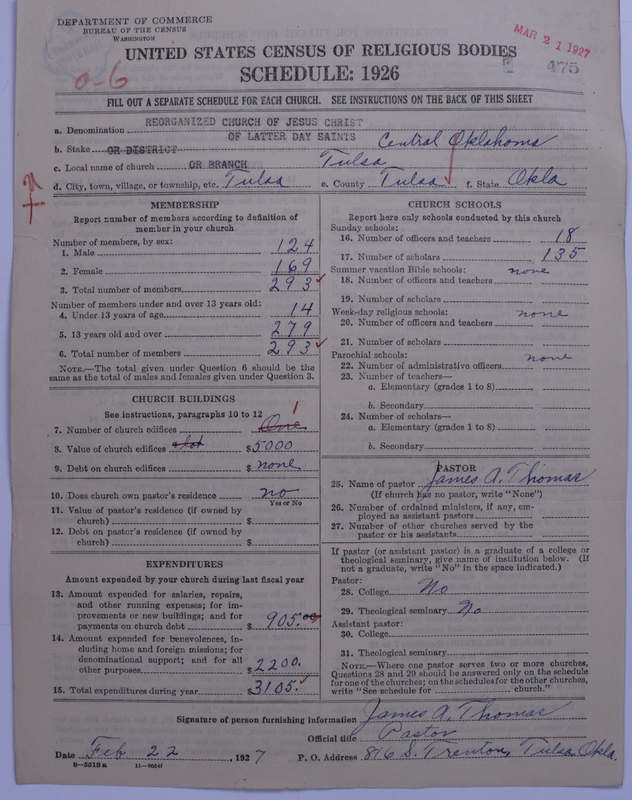 DEPARTMENT OF COMMERCE
BUREAU OF THE CENSUS
WASHINGTON
MAR 21 1927
UNITED STATES CENSUS OF RELIGIOUS BODIES
0-6
SCHEDULE: 1926
475
FILL OUT A SEPARATE SCHEDULE FOR EACH CHURCH. SEE INSTRUCTIONS ON THE BACK OF THIS SHEET
REORGANIZED CHURCH OF JESUS CHRIST
a. Denomination
OF LATTER DAY SAINTS
b. Stake OR DISTRICT Central Oklahoma
c. Local name of church OR BRANCH Tulsa
d. City, town, village, or township, etc. Tulsa e. County Tulsa f. State Okla
MEMBERSHIP
Report number of members according to definition of
member in your church
Number of members, by sex:
1. Male 124
2. Female 169
3. Total number of members 293
Number of members under and over 13 years old:
4. Under 13 years of age 14
5. 13 years old and over 279
6. Total number of members 293
NOTE.—The total given under Question 6 should be
same as the total of males and females given under Question 3.
CHURCH BUILDINGS
See instructions, paragraphs 10 to 12
1
7. Number of church edifices One
8. Value of church edifices & lot $5000
9. Debt on church edifices $ none
10. Does church own pastor's residence no
Yes or No
11. Value of pastor's residence (if owned by
church) $
12. Debt on pastor's residence (if owned by
church) $
EXPENDITURES
Amount expended by your church during last fiscal year
13. Amount expended for salaries, repairs,
and other running expenses; for im-
provements or new buildings; and for
payments on church debt $ 905.00
14. Amount expended for benevolences, in-
cluding home and foreign missions; for
denominational support; and for all
other purposes $ 2200.
15. Total expenditures during year $3105.
CHURCH SCHOOLS
Report here only schools conducted by this church
Sunday schools:
16. Number of officers and teachers 18
17. Number of scholars 135
Summer vacation Bible schools: none
18. Number of officers and teachers
19. Number of scholars
Week-day religious schools: none
20. Number of officers and teachers
21. Number of scholars
Parochial schools: none
22. Number of administrative officers
23. Number of teachers—
a. Elementary (grades 1 to 8)
b. Secondary
24. Number of scholars—
a. Elementary (grades 1 to 8)
b. Secondary
PASTOR
25. Name of pastor James A. Thomas
(If church has no pastor, write "None")
26. Number of ordained ministers, if any, em-
ployed as assistant pastors
27. Number of other churches served by the
pastor or his assistants
If pastor (or assistant pastor) is a graduate of a college or
theological seminary, give name of institution below. (If
not a graduate, write "No" in the space indicated.)
Pastor:
28. College No
29. Theological seminary No
Assistant pastor:
30. College
31. Theological seminary
NOTE.—Where one pastor serves two or more churches,
Questions 28 and 29 should be answered only on the schedule
for one of the churches; on the schedules for the other churches,
write "See schedule for church."
Signature of person furnishing information James A. Thomas
Official title Pastor
Date Feb 22, 1927 P. O. Address 816 S. Trenton, Tulsa, Okla.
8-5518a